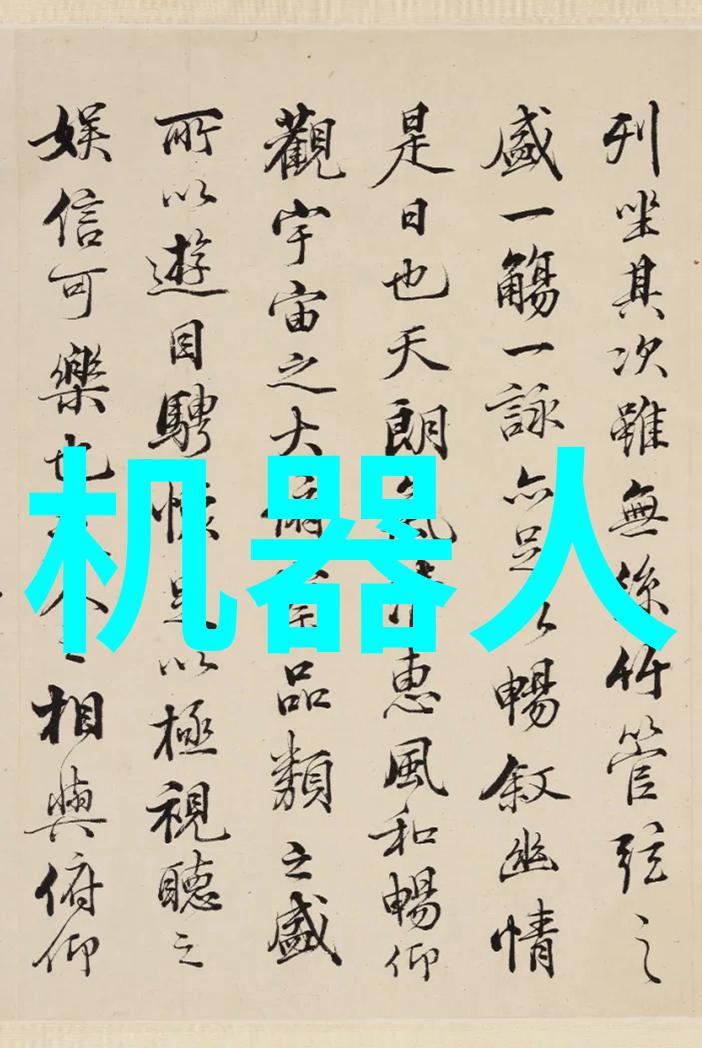 列坐其次雖無絲竹管弦之
盛一觴一詠亦足以暢叙幽情
是日也天朗氣清惠風和暢仰
觀宇宙之大俯察品類之盛
所以遊目騁懷足以極視聽之
娱信可樂也夫人之相與俯仰
机器人